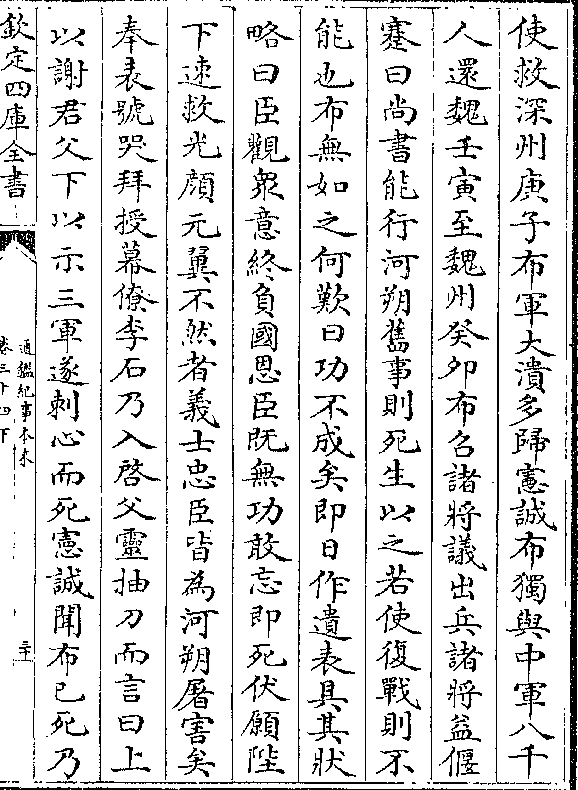 使救深州庚子布軍大潰多歸憲誠布獨與中軍八千
人還魏壬寅至魏州癸卯布召諸將議出兵諸將益偃
蹇曰尚書能行河朔舊事則死生以之若使復戰則不
能也布無如之何歎曰功不成矣即日作遺表具其狀
略曰臣觀衆意終負國恩臣既無功敢忘即死伏願陛
下速救光顔元翼不然者義士忠臣皆為河朔屠害矣
奉表號哭拜授幕僚李石乃入啓父靈抽刀而言曰上
以謝君父下以示三軍遂刺心而死憲誠聞布已死乃
欽定四庫全書
通鑑紀事本末
卷三十四下